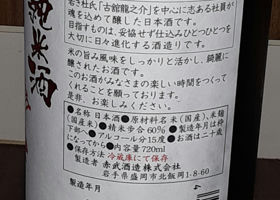 純米酒
若き杜氏「古舘龍之介」を中心に志ある社員が
魂を込めて醸した日本酒です。
目指すものは、妥協せず仕込みひとつひとつを
大切に日々進化する酒造りです。
米の旨み風味をしっかりと活かし、綺麗に
醸されたお酒です。
このお酒がみなさまの楽しい時間をつくって
くれることを願っております。
是非、お楽しみください。
●名称 日本酒 ●原材料名 米(国産)、米麹
(国産米) ●精米歩合60% ●製造年月は枠
下部へ ●アルコール分15度 ●お酒は二十歳
になってから ●内容量 720ml
●保存方法 冷蔵庫にて保存
製造者 赤武酒造株式会社
岩手県盛岡市北飯岡1-8-60
製造年月